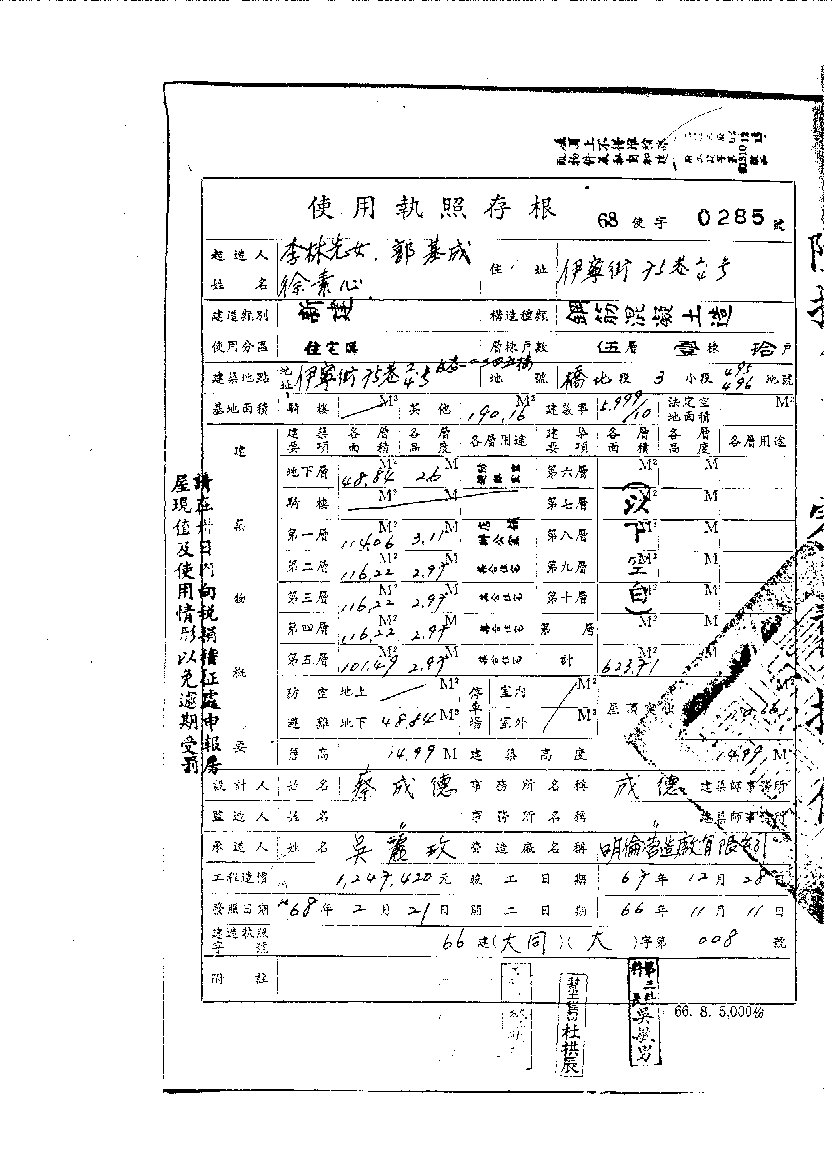 使用執照存根 68 使字 0285 號
起造人 姓名 李林先女、郭基成 徐素心 住址 伊寧街75巷 号
建造類別 新建 構造種類 鋼筋混凝土造
使用分區 住宅區 層棟戶數 伍層 壹棟 拾戶
建築地點 地址 伊寧街75巷 地號 橋北段 3 小段 495 496 地號
基地面積 騎樓 M² 其他 190.16 建蔽率 5.999/10 法定空地面積 M²
建築物概要
建築要項 各層面積 各層高度 各層用途 建築要項 各層面積 各層高度 各層用途
地下層 48.84 M² 2.6 M 第六層 M² M
騎樓 M² M 第七層 M
第一層 114.06 M² 3.11 M 第八層 M² M
第二層 116.22 M² 2.97 M 集合住宅 第九層 M² M
第三層 116.22 M² 2.97 M 集合住宅 第十層 M² M
第四層 116.22 M² 2.97 M 集合住宅 第 層 M² M
第五層 101.49 M² 2.97 M 集合住宅 計 623.71
(以下空白)
防空避難 地上 M² 停車場 室內 M²
地下 48.84 M² 室外 M²
簷高 14.99 M 建築高度 14.99 M
設計人 姓名 蔡成德 事務所名稱 成德 建築師事務所
監造人 姓名 〃 事務所名稱 〃 建築師事務所
承造人 姓名 吳麗玫 營造廠名稱 明倫營造廠有限公司
工程造價 1,247,420 元 竣工日期 67 年 12 月 28 日
發照日期 68 年 2 月 21 日 開工日期 66 年 11 月 11 日
建造執照字號 66 建(大同)(大)字第 008 號
附註
杜拱辰
66. 8. 5,000份
請在 日內向稅捐稽征處申報房
屋現值及使用情形以免逾期受罰